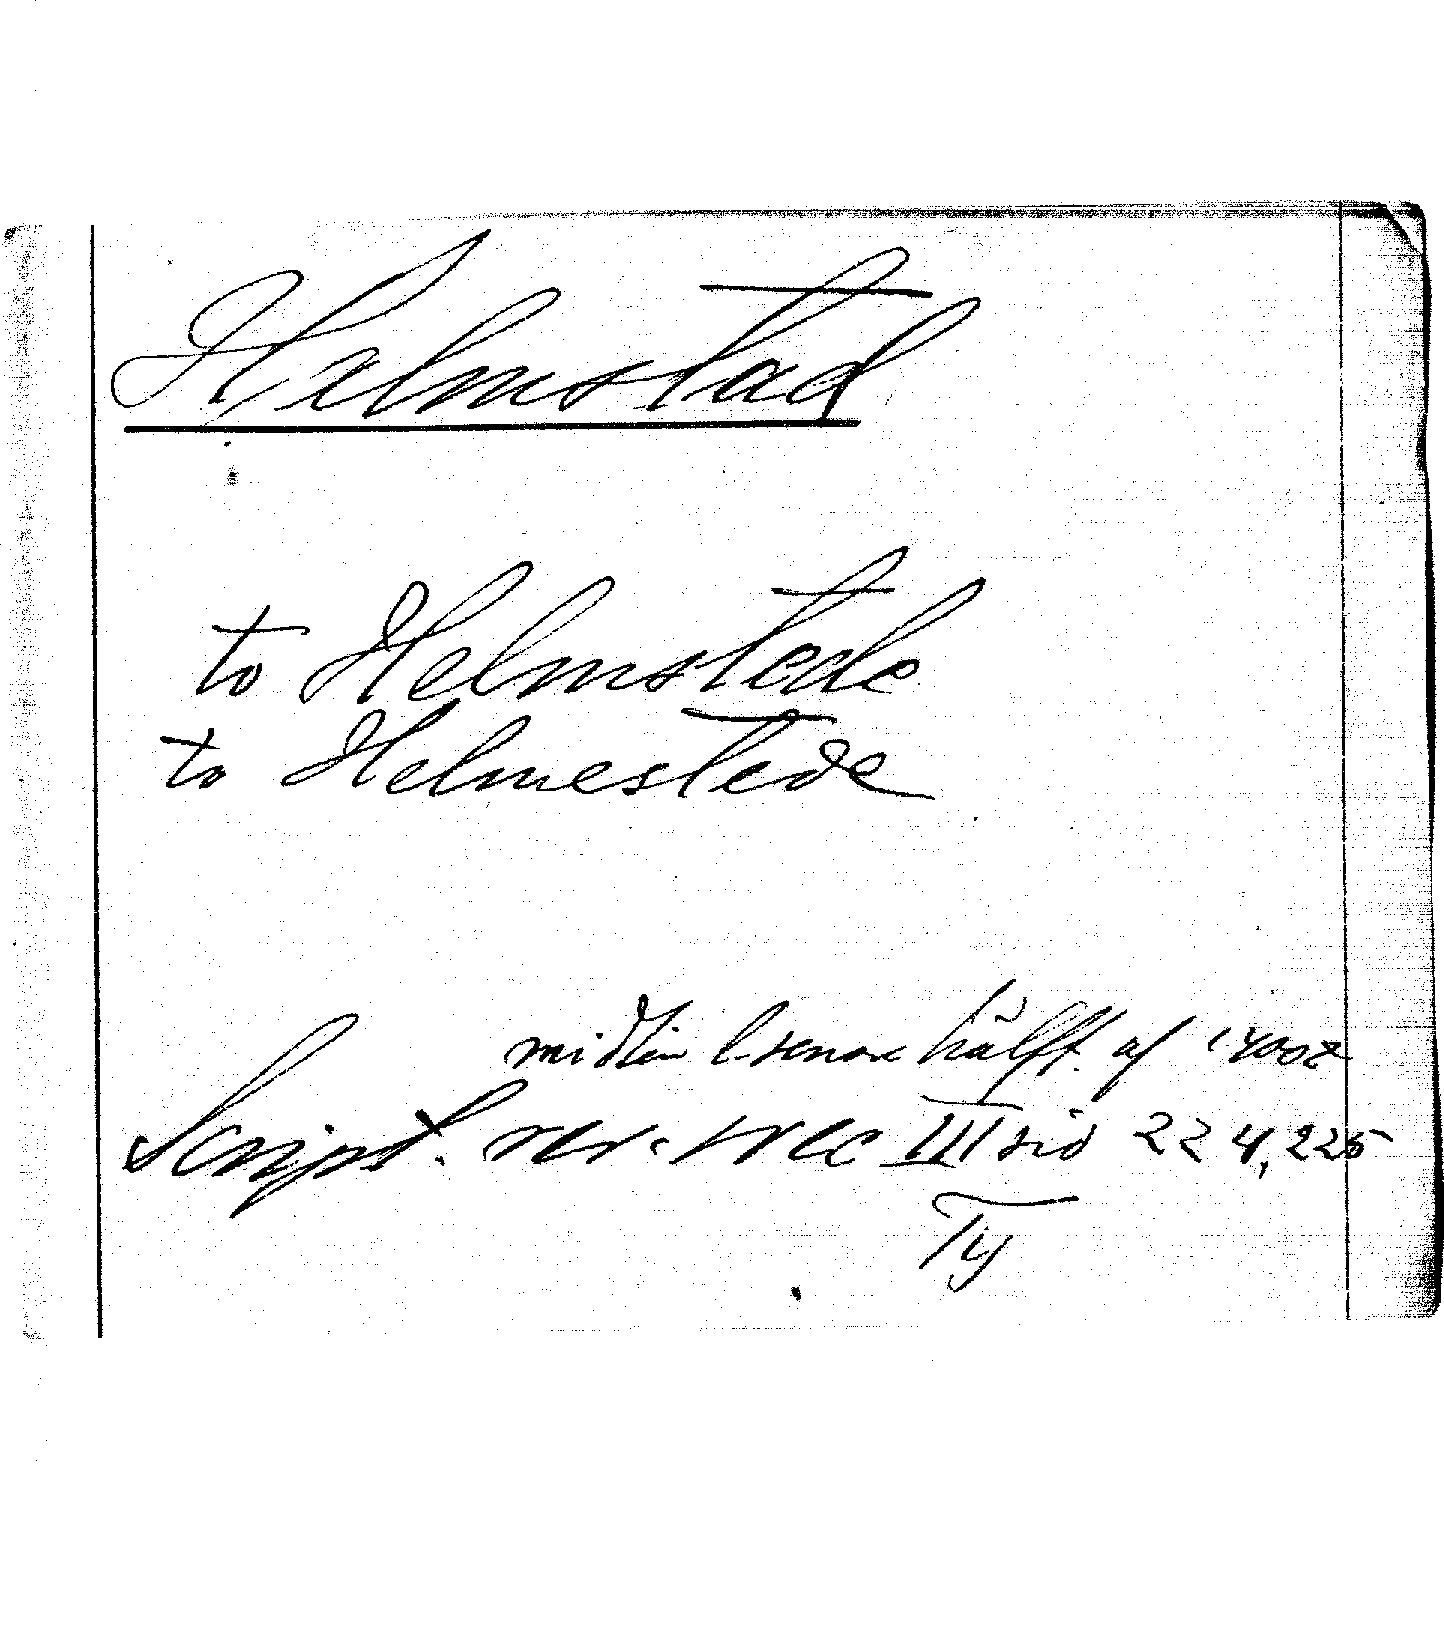 Helmstad
to Helmstede
to Helmestede
midten l. senare hälft af 1400 t
Script. rer. svec III sid 224, 225
Ty